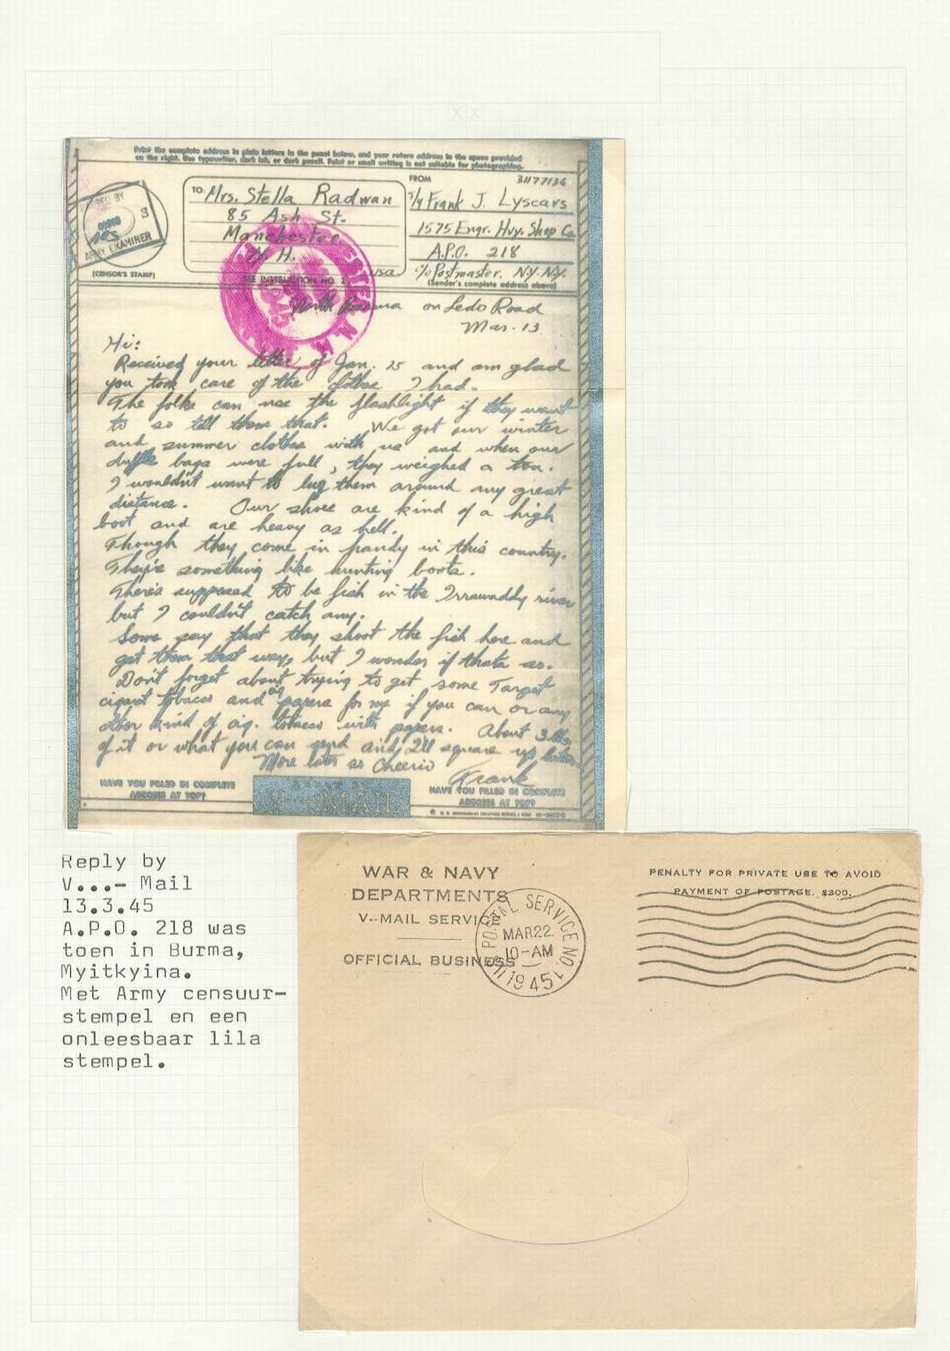 Print the complete address in plain letters in the panel below, and your return address in the space provided
on the right. Use typewriter, dark ink, or dark pencil. Faint or small writing is not suitable for photographing.
TO Mrs. Stella Radwan
85 Ash St.
Manchester
N. H.
USA
SEE INSTRUCTION NO. 2
FROM 31177136
T/4 Frank J. Lyscars
1575 Engr. Hvy. Shop Co.
A.P.O. 218
c/o Postmaster, N.Y. N.Y.
(Sender's complete address above)
ARMY EXAMINER
(CENSOR'S STAMP)
North Burma on Ledo Road
Mar. 13
Hi:
Received your letter of Jan. 25 and am glad
you took care of the clothes I had.
The folks can use the flashlight if they want
to so tell them that. We got our winter
and summer clothes with us and when our
duffle bags were full, they weighed a ton.
I wouldn't want to lug them around any great
distance. Our shoes are kind of a high
boot and are heavy as hell.
Though they come in handy in this country.
They're something like hunting boots.
There's supposed to be fish in the Irrawaddy river
but I couldn't catch any.
Some say that they shoot the fish here and
get them that way, but I wonder if thats so.
Don't forget about trying to get some Target
cigaret tobacco and papers for me if you can or any
other kind of cig. tobacco with papers. About 3 lbs.
of it or what you can send and I'll square up later.
More later so Cheerio
Frank
HAVE YOU FILLED IN COMPLETE
ADDRESS AT TOP?
V-MAIL
HAVE YOU FILLED IN COMPLETE
ADDRESS AT TOP?
Reply by
V...- Mail
13.3.45
A.P.O. 218 was
toen in Burma,
Myitkyina.
Met Army censuur-
stempel en een
onleesbaar lila
stempel.
WAR & NAVY
DEPARTMENTS
V--MAIL SERVICE
OFFICIAL BUSINESS
POSTAL SERVICE NO.
MAR 22
10-AM
1945
PENALTY FOR PRIVATE USE TO AVOID
PAYMENT OF POSTAGE, $300.